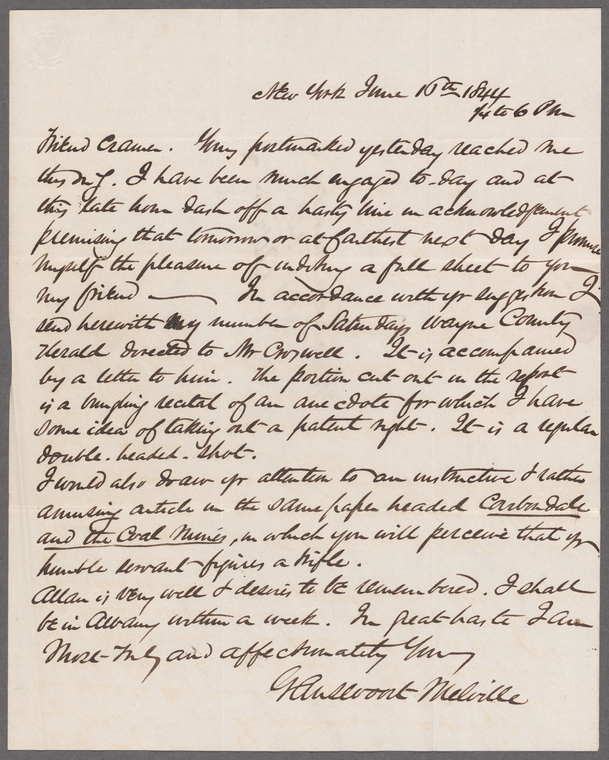 New York June 16th 1844
1/4 to 6 PM
Friend Cramer. Yours postmarked yesterday reached me
this mg. I have been much engaged to-day and at
this late hour dash off a hasty line in acknowledgement
premising that tomorrow or at farthest next day I promise
myself the pleasure of inditing a full sheet to you
my friend — In accordance with yr suggestion I
send herewith my number of Saturdays Wayne County
Herald directed to Mr Croswell. It is accompanied
by a letter to him. The portion cut out in the report
is a bungling recital of an anecdote for which I have
some idea of taking out a patent right. It is a regular
double-headed-shot.
I would also draw yr attention to an instructive & rather
amusing article in the same paper headed Carbondale
and the Coal Mines, in which you will perceive that yr
humble servant figures a trifle.
Allan is very well & desires to be remembered. I shall
be in Albany within a week. In great haste I am
Most truly and affectionately Yours
Gansevoort Melville